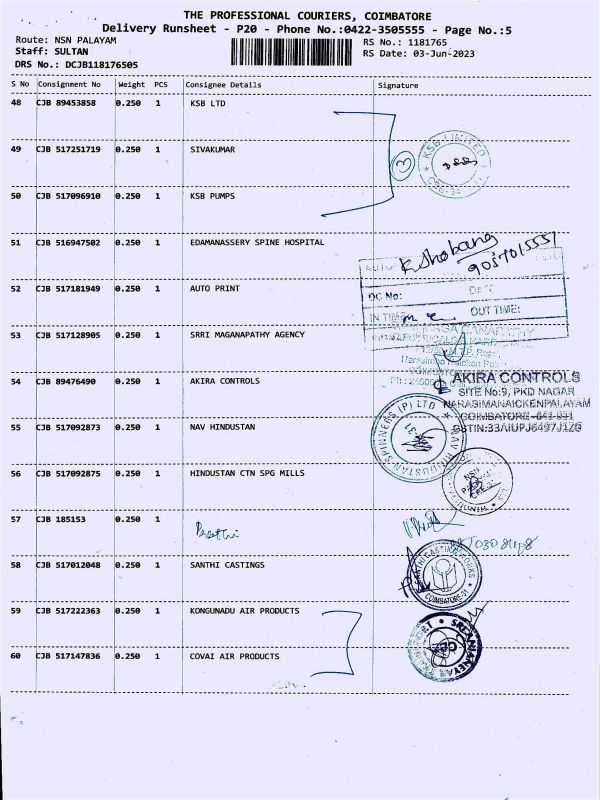 THE PROFESSIONAL COURIERS, COIMBATORE
Delivery Runsheet - P20 - Phone No.:0422-3505555 - Page No.:5
Route: NSN PALAYAM
RS No.: 1181765
Staff: SULTAN
RS Date: 03-Jun-2023
DRS No.: DCJB118176505
S No Consignment No Weight PCS Consignee Details Signature
48 CJB 89453858 0.250 1 KSB LTD
49 CJB 517251719 0.250 1 SIVAKUMAR
3
KSB LIMITED
50 CJB 517096910 0.250 1 KSB PUMPS
51 CJB 516947502 0.250 1 EDAMANASSERY SPINE HOSPITAL
52 CJB 517181949 0.250 1 AUTO PRINT
DC No:
OUT TIME:
53 CJB 517128905 0.250 1 SRRI MAGANAPATHY AGENCY
54 CJB 89476490 0.250 1 AKIRA CONTROLS
AKIRA CONTROLS
SITE No:9, PKD NAGAR
NARASIMANAICKENPALAYAM
COIMBATORE-641 031
55 CJB 517092873 0.250 1 NAV HINDUSTAN
NAV HINDUSTAN SPINNERS (P) LTD
56 CJB 517092875 0.250 1 HINDUSTAN CTN SPG MILLS
57 CJB 185153 0.250 1
Preethi
58 CJB 517012048 0.250 1 SANTHI CASTINGS
COIMBATORE-31
59 CJB 517222363 0.250 1 KONGUNADU AIR PRODUCTS
60 CJB 517147836 0.250 1 COVAI AIR PRODUCTS